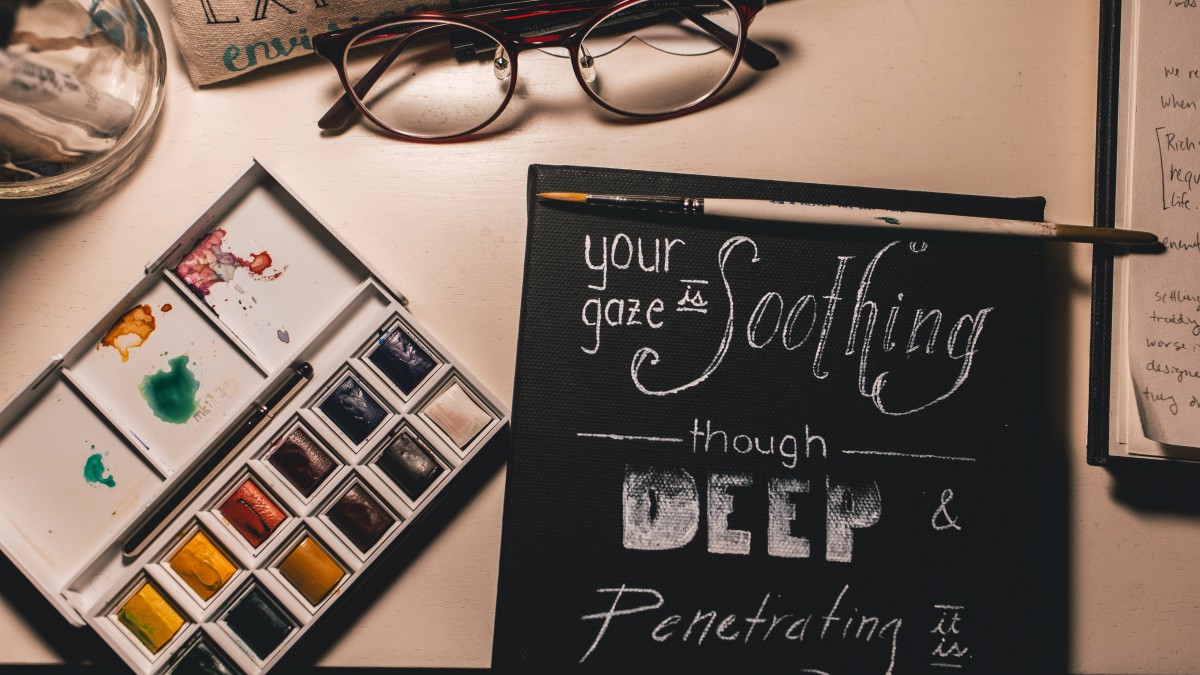 your
gaze is Soothing
though
DEEP &
Penetrating it
is
envi
we re
when
Rich
requ
Life.
settling
worse
designe
they